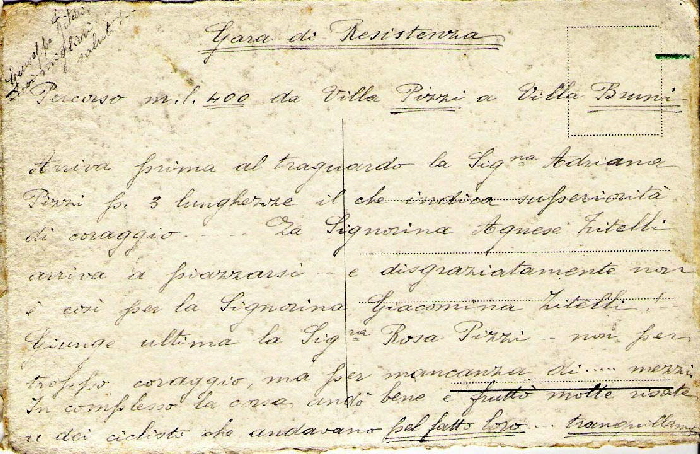 Gara di Resistenza
Percorso m.l. 400 da Villa Pizzi a Villa Bruni
Arriva prima al traguardo la Sig.na Adriana
Pizzi p. 3 lunghezze il che indica superiorità
di coraggio..... La Signorina Agnese Zitelli
arriva a piazzarsi - e disgraziatamente non
è così per la Signorina Giacomina Zitelli!
Giunge ultima la Sig.na Rosa Pizzi - non per
troppo coraggio, ma per mancanza di .... mezzi
In complesso la corsa andò bene e fruttò molte risate
dei ciclisti che andavano pel fatto loro ... tranquillamente